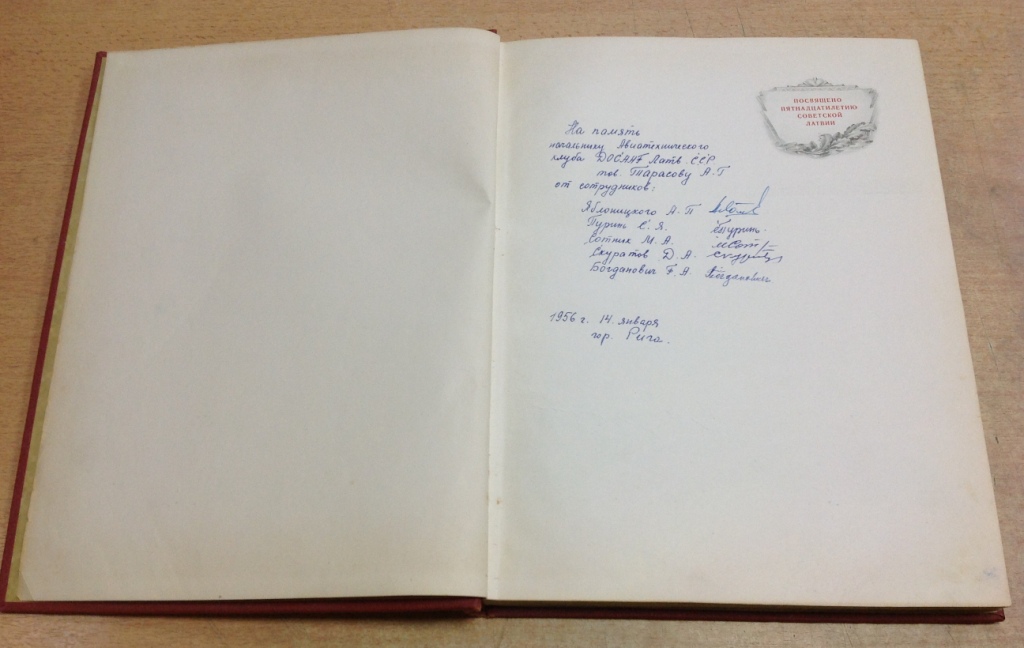 ПОСВЯЩЕНО
ПЯТНАДЦАТИЛЕТИЮ
СОВЕТСКОЙ
ЛАТВИИ
На память
начальнику Авиатехнического
клуба ДОСААФ Латв. ССР
тов. Тарасову А.Г
от сотрудников:
Яблоницкого А. П
Пуринь С. Я. Пуринь
Сотник М. А.
Скуратов Д. А.
Богданович Г. А. Богданович
1956 г. 14 января
гор. Рига.